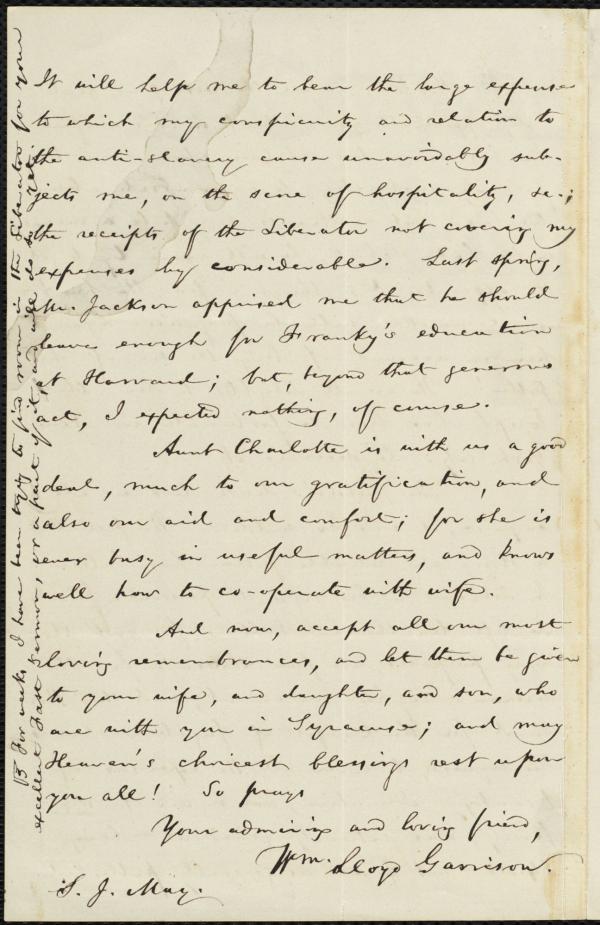 It will help me to bear the large expense
to which my conspicuity and relation to
the anti-slavery cause unavoidably sub-
jects me, on the score of hospitality, &c.;
the receipts of the Liberator not covering my
expenses by considerable. Last spring,
Mr. Jackson apprised me that he should
leave enough for Franky's education
at Harvard; but, beyond that generous
act, I expected nothing, of course.
Aunt Charlotte is with us a good
deal, much to our gratification, and
also our aid and comfort; for she is
ever busy in useful matters, and knows
well how to co-operate with wife.
And now, accept all our most
loving remembrances, and let them be given
to your wife, and daughter, and son, who
are with you in Syracuse; and may
Heaven's choicest blessings rest upon
you all! So prays
Your admiring and loving friend,
Wm. Lloyd Garrison.
S. J. May.
For weeks I have been trying to find room in the Liberator for your
excellent Fast Sermon, or a part of it, and will do so